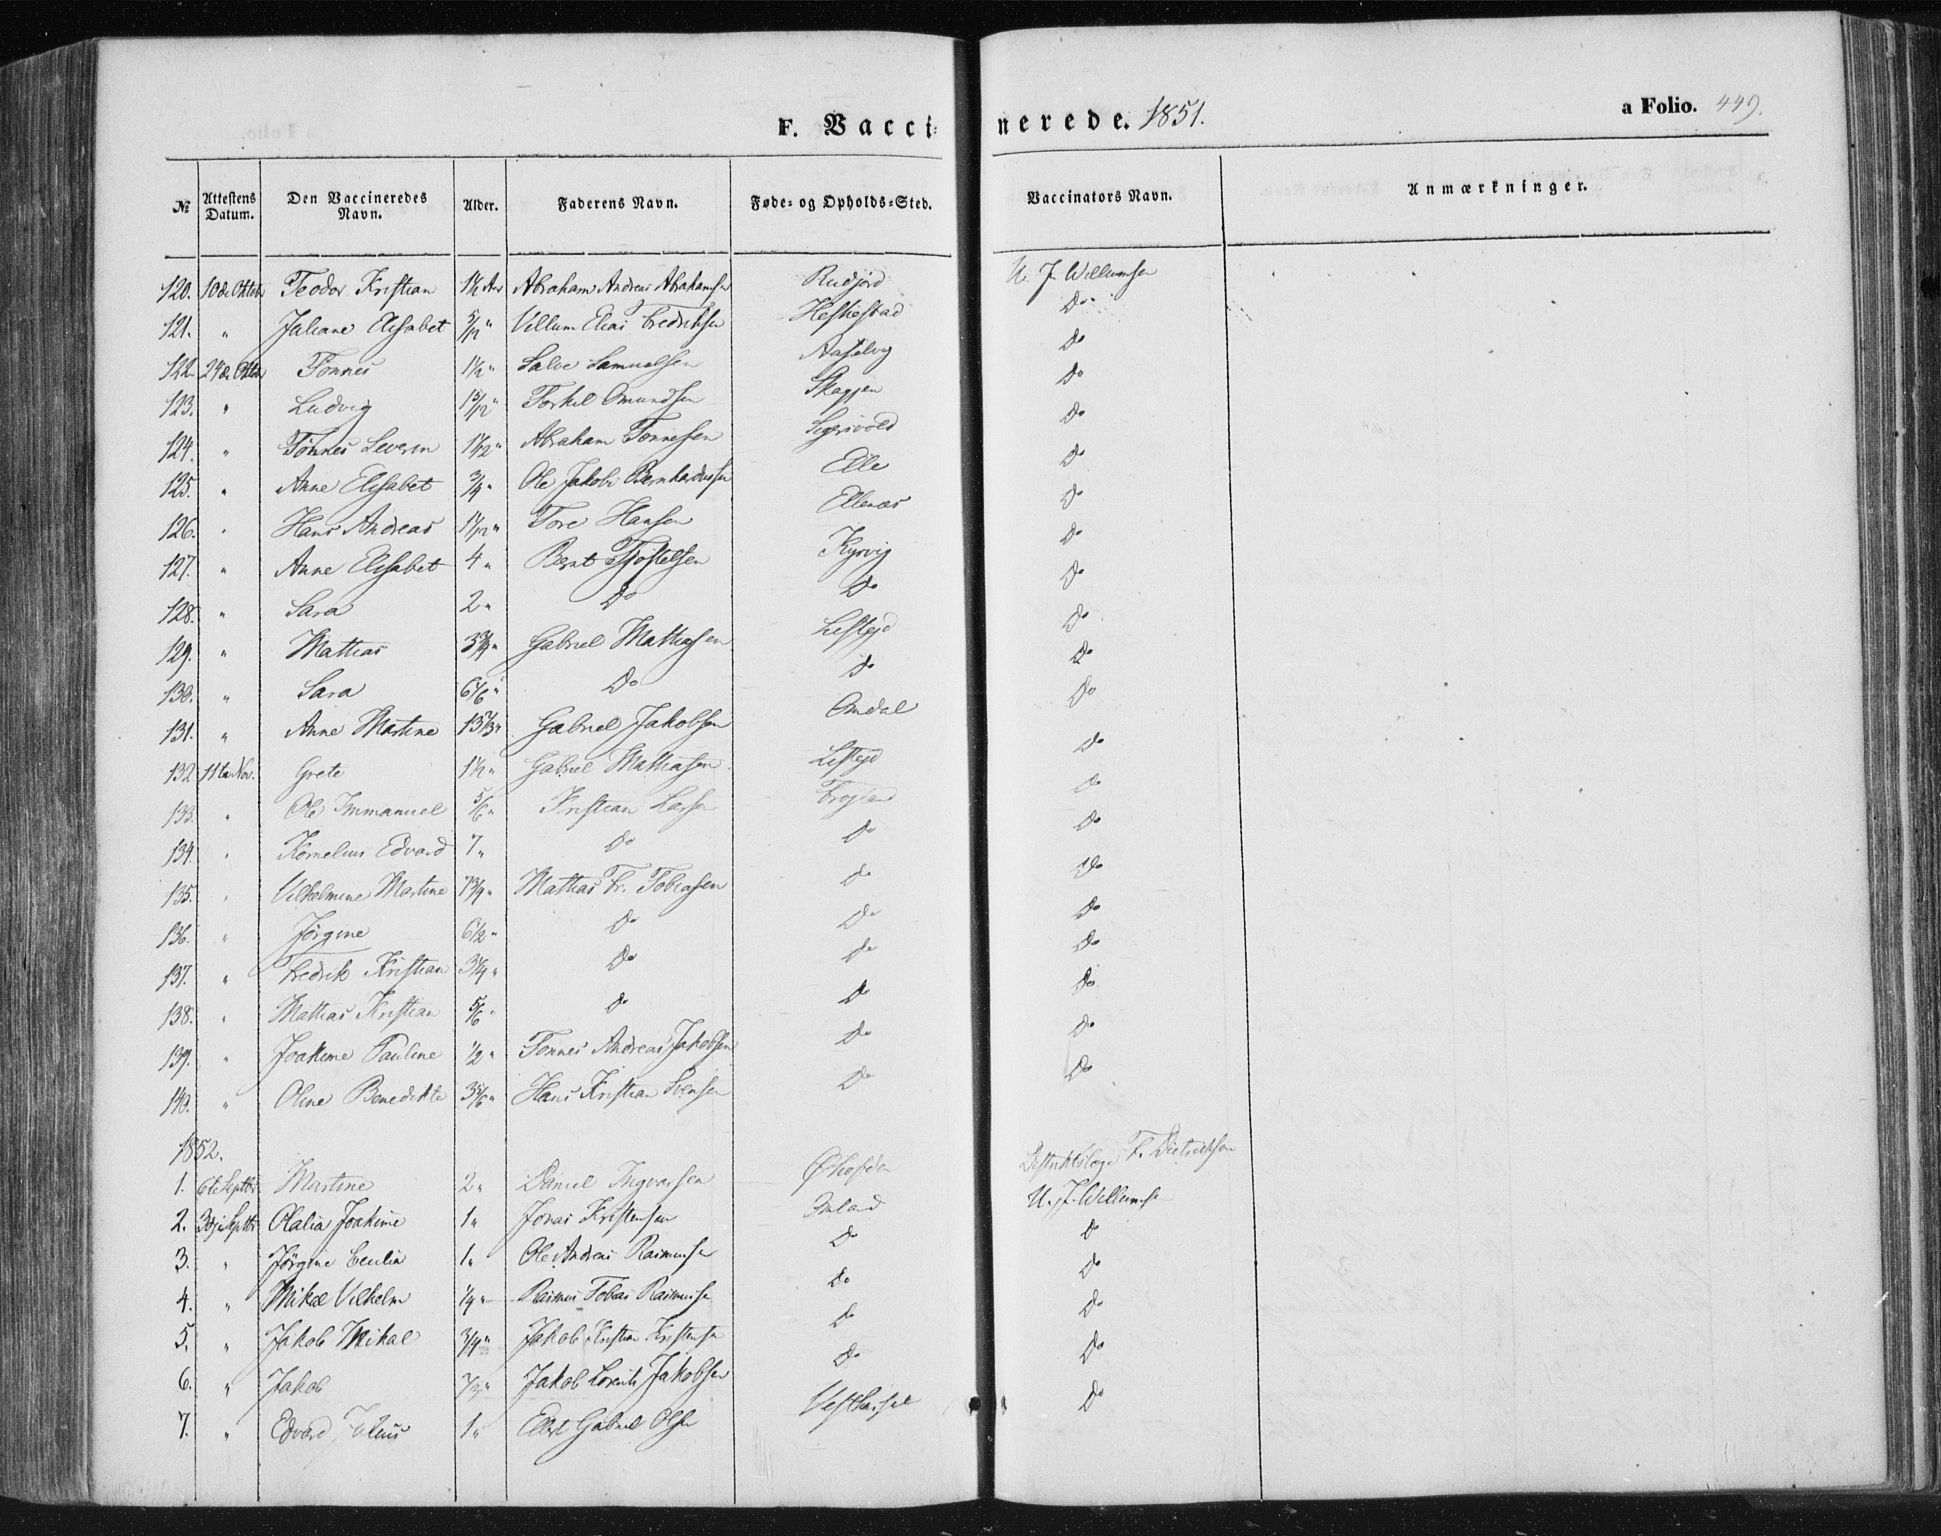 F. Vaccinerede. 1851.
a Folio. 449.
№ Attestens Datum. Den Vaccineredes Navn. Alder. Faderens Navn. Føde- og Opholds-Sted. Vaccinators Navn. Anmærkninger.
120. 10de Oktob Teodor Kristian 1½ Aar Abraham Andreas Abrahamsen Rudjord U. J. Willumsen
121. " Juliane Elisabet 5/12 " Villum Elias Fredriksen Heskestad Do
122. 24de Oktbr Tønnes 1½ " Salve Samuelsen Do
123. " Ludvig 1 5/12 " Torkel Omundsen Skagjen Do
124. " Tönnes Severin Abraham Tønnesen Sigersvold Do
125. " Anne Elisabet ¾ " Ole Jakob Bernhardussen Elle Do
126. " Hans Andreas Tore Hansen Ellenæs Do
127. " Anne Elisabet 4 " Bernt Kyrvig Do
128. " Sara 2 " Do Do Do
129. " Mattias 3¾ " Gabriel Mattiasen Do
130. " Sara 6 1/6 " Do Do Do
131. " Anne Martine 13 2/3 " Gabriel Jakobsen Omdal Do
132 11te Nov. Grete 1½ " Gabriel Mattiasen Do
133. " Ole Immanuel 5/6 " Kristian Larsen Do
134. " Kornelius Edvard 7 " Do Do Do
135. " Vilhelmine Martine 7¾ " Mattias Fr. Tobiasen Do Do
136. " Jörgine 6½ " Do Do Do
137. " Fredrik Kristian 3¼ " Do Do Do
138. " Mattias Kristian 5/6 " Do Do Do
139. " Joakime Pauline ½ " Tønnes Andreas Jakobsen Do Do
140. " Oline Benedikte 3 5/6 " Hans Kristian Svensen Do Do
1852.
1. 6te Septbr Martine 2 " Daniel Ingvorsen Distriktslæge F. Dietrichson
2. Septbr Olalia Joakime 1 " Jonas Kristensen U. J. Willumsen
3. " Jörgine 1 " Ole Andreas Rasmussen Do Do
4. " Mikal Vilhelm ¼ " Rasmus Tobias Rasmussen Do Do
5. " Jakob Mikal ¾ " Jakob Kristian Kristensen Do Do
6. " Jakob Jakob Lorents Jakobsen Do Do
7. " Edvard Julius 1 " Elert Gabriel Olsen Vesthassel Do